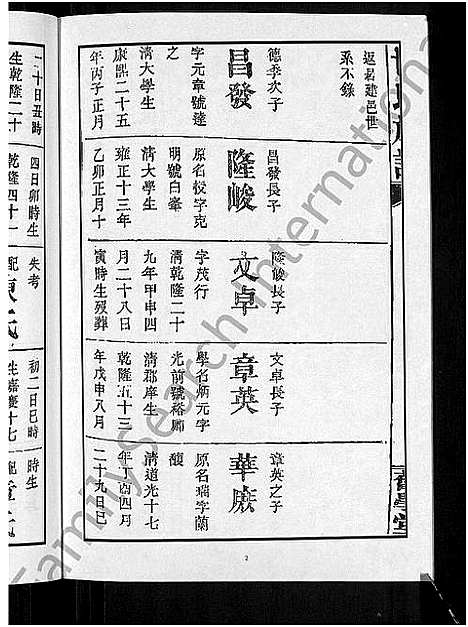 返居建邑世
系不錄
德季次子
昌發
字元章號達
之
清大學生
康熙二十五
年丙子正月
昌發長子
隆峻
原名悅字克
明號白峯
清大學生
雍正十三年
乙卯正月十
隆峻長子
文卓
字茂行
清乾隆二十
九年甲申四
月二十八日
寅時生歿葬
文卓長子
章英
學名炳元字
光前號裕卿
清郡庠生
乾隆五十三
年戊申八月
章英之子
華廒
原名瑞字蘭
馥
清道光十七
年丁酉四月
二十九日巳
二十日丑時
生乾隆二十
四日卯時生
乾隆四十一
失考
配
初二日巳時
生嘉慶十七
時生
FamilySearch International
2